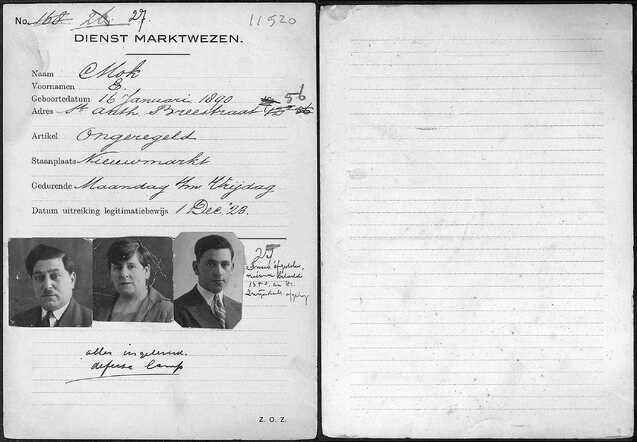 No. 168 26 27
11920
DIENST MARKTWEZEN.
Naam Mok
Voornamen E.
Geboortedatum 16 Januari 1890
Adres St. Anth. Breestraat 56
Artikel Ongeregeld
Staanplaats Nieuwmarkt
Gedurende Maandag t/m Vrijdag
Datum uitreiking legitimatiebewijs 1 Dec. '23.
27
alles ingeleverd.
Z. O. Z.